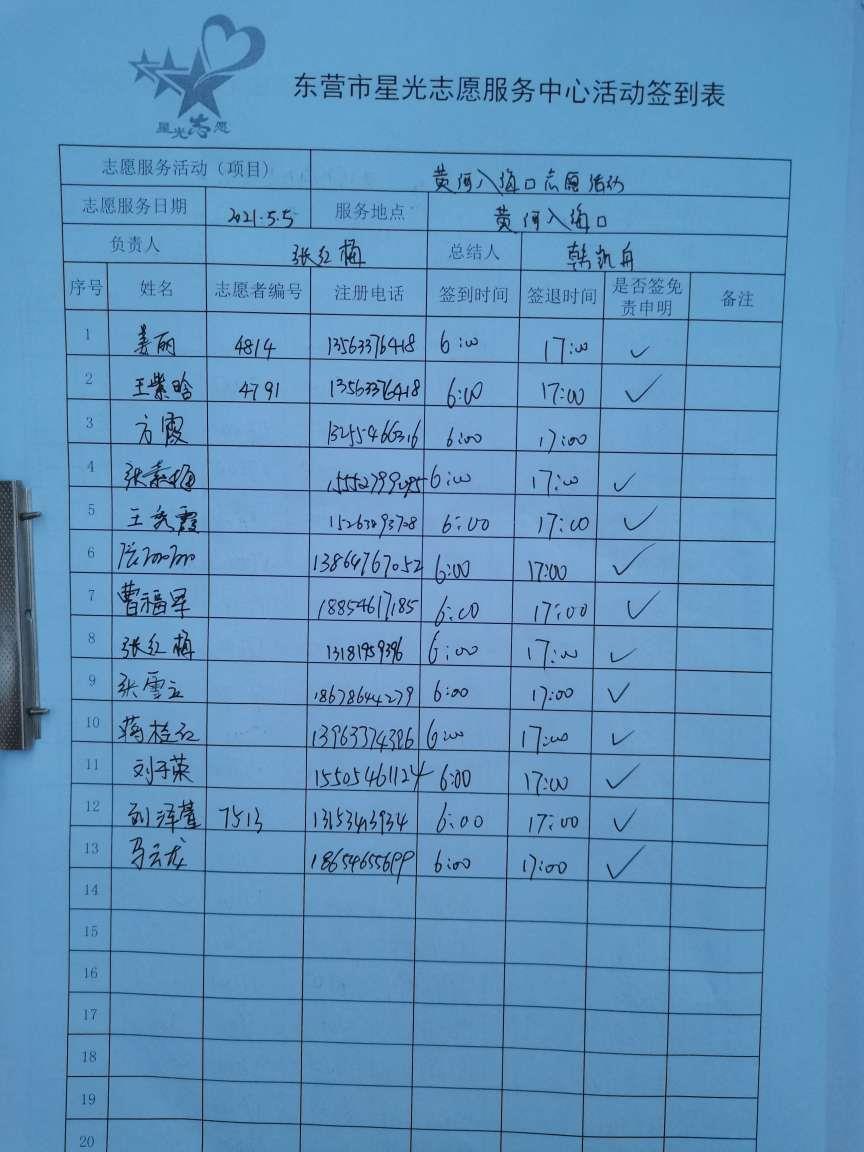 星光志愿
东营市星光志愿服务中心活动签到表
志愿服务活动（项目） 黄河入海口志愿活动
志愿服务日期 2021.5.5 服务地点 黄河入海口
负责人 张红梅 总结人 韩凯舟
序号 姓名 志愿者编号 注册电话 签到时间 签退时间 是否签免责申明 备注
1 姜丽 4814 13563376418 6:00 17:00 ✓
2 王紫晗 4791 13563376418 6:00 17:00 ✓
3 方霞 13255466316 6:00 17:00
4 张素梅 15552799095 6:00 17:00 ✓
5 王秀霞 15263893728 6:00 17:00 ✓
6 13864767052 6:00 17:00 ✓
7 曹福军 18854617185 6:00 17:00 ✓
8 张红梅 13181959396 6:00 17:00 ✓
9 张雪立 18678644279 6:00 17:00 ✓
10 蒋桂红 13963374386 6:00 17:00 ✓
11 刘子英 15505461124 6:00 17:00 ✓
12 刘泽萱 7513 13153413934 6:00 17:00 ✓
13 马云龙 18654655699 6:00 17:00 ✓
14
15
16
17
18
19
20